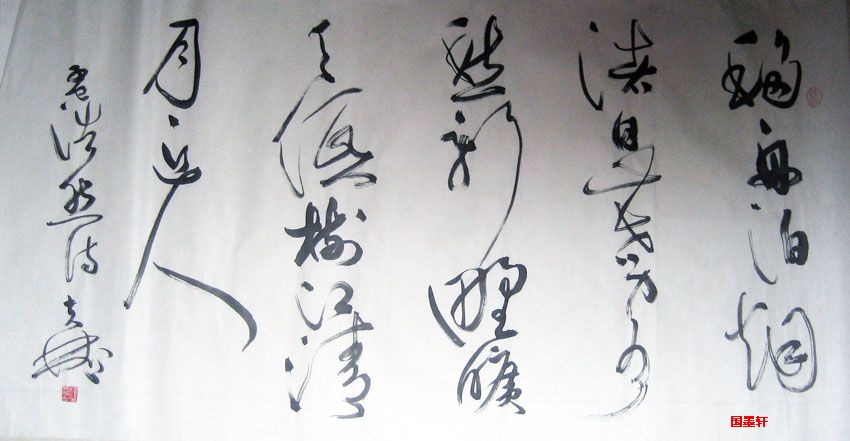 移舟泊烟
渚日暮客
愁新野曠
天低樹江清
月近人
孟浩然诗
国墨轩